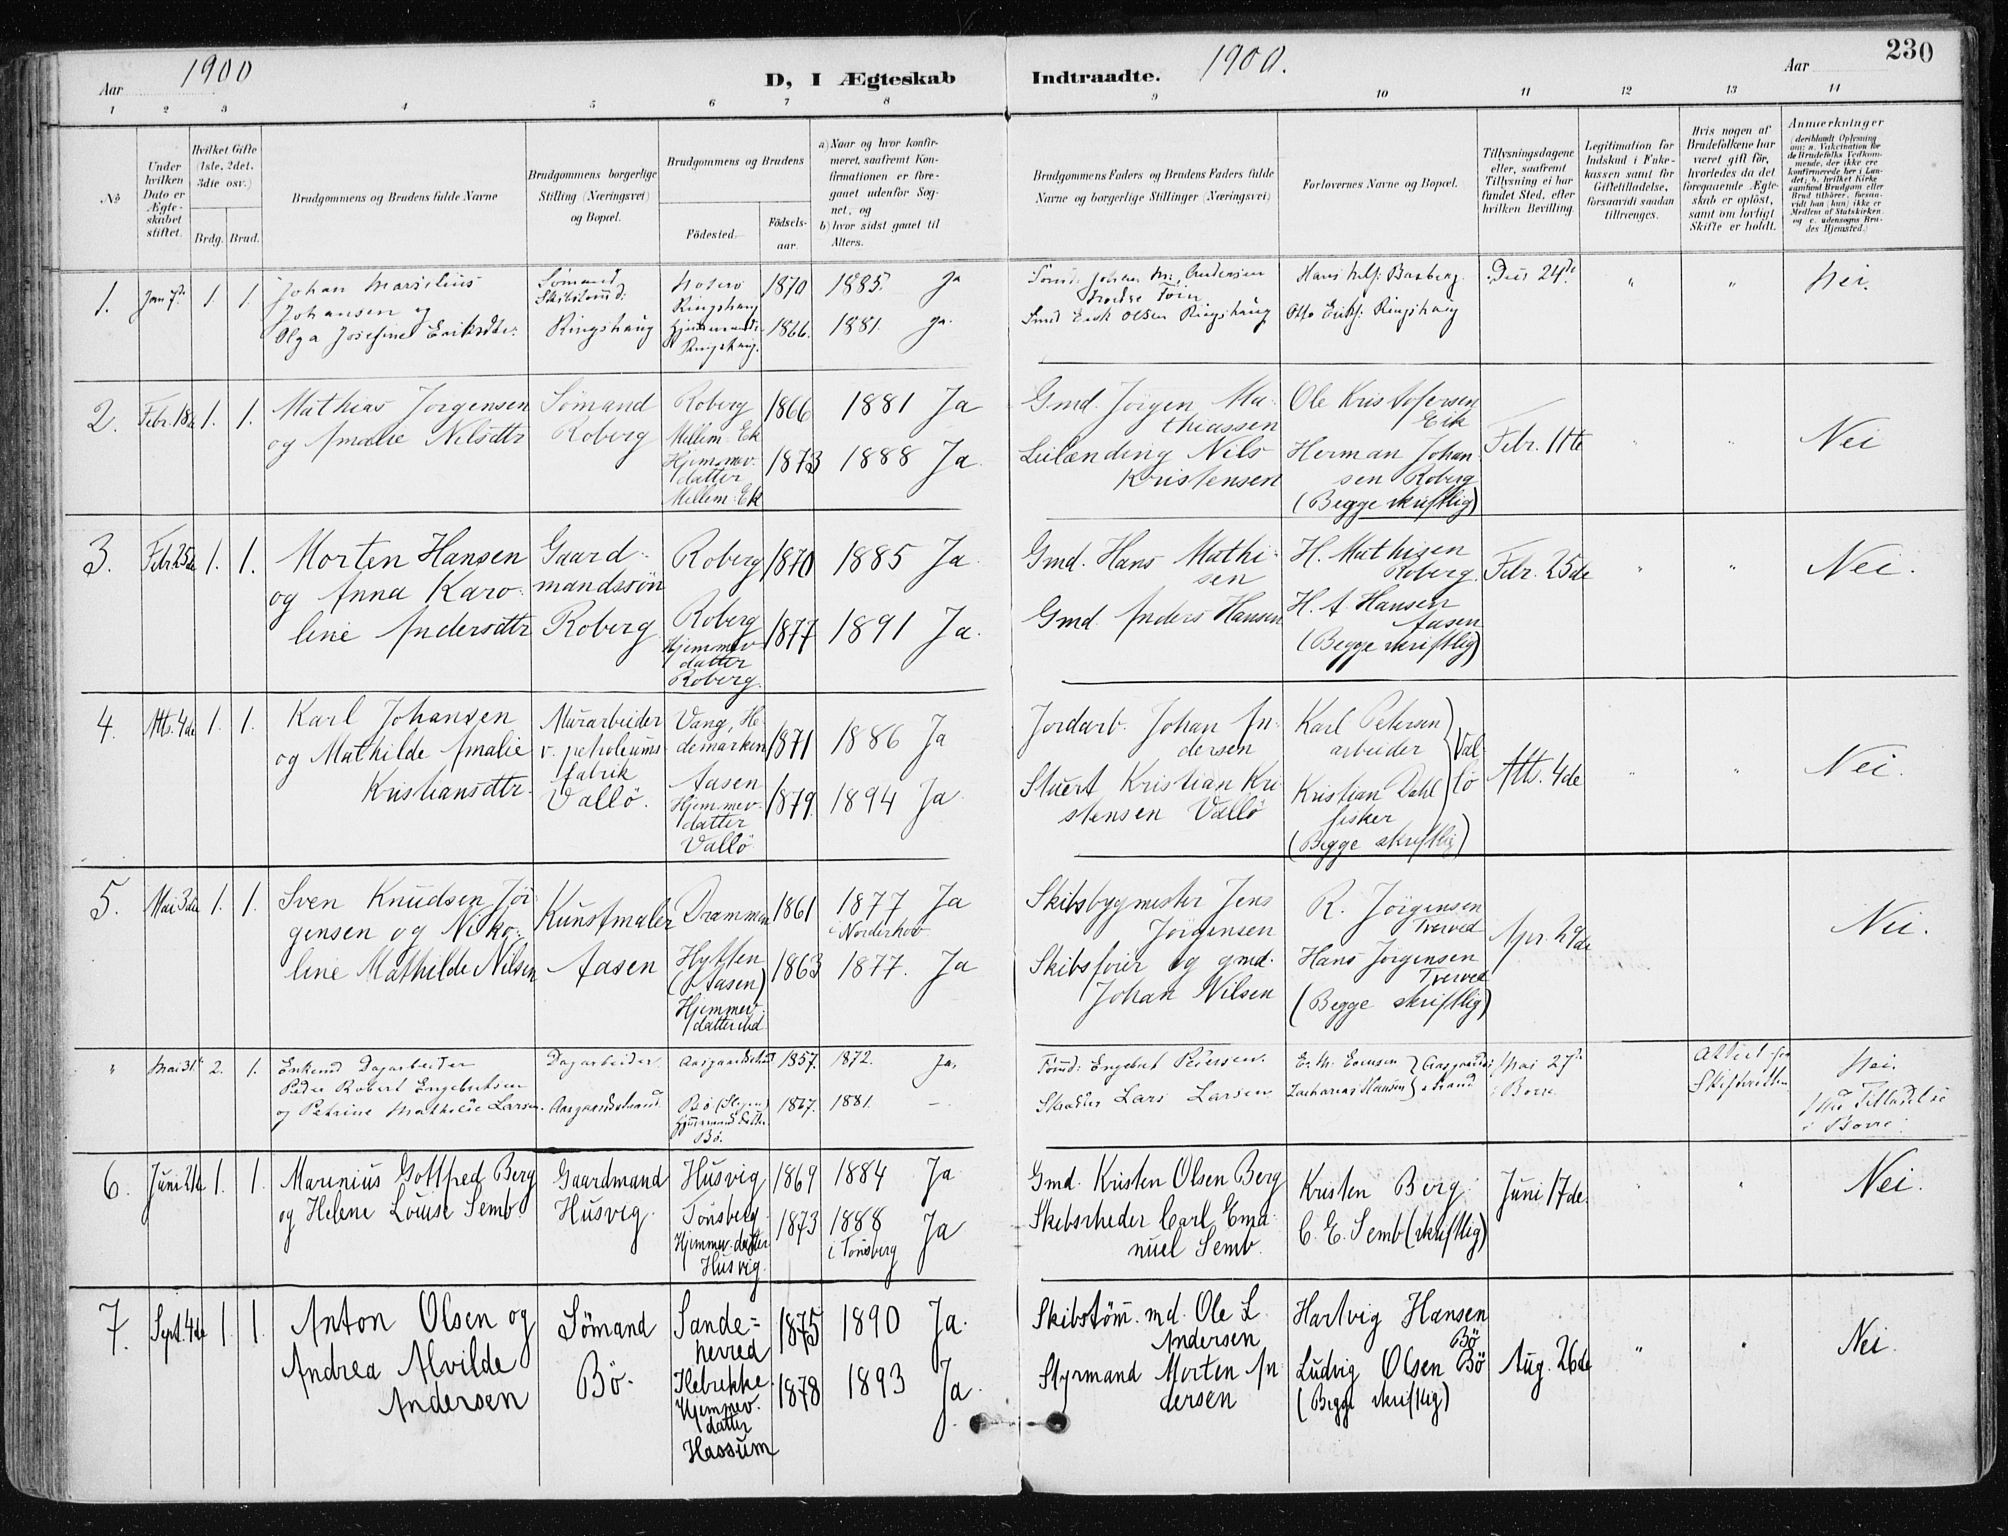 1900
1900.
230
Aar
D, I Ægteskab
Indtraadte.
Aar
1 2 3 4 5 6 7 8 9 10 11 12 13 14
No
Under hvilken Dato er Ægteskabet stiftet.
Hvilket Gifte (1ste, 2det, 3die osv.)
Brdg. Brud.
Brudgommens og Brudens fulde Navne
Brudgommens borgerlige Stilling (Næringsvei) og Bopæl.
Brudgommens og Brudens
Fødested.
Fødselsaar.
a) Naar og hvor konfirmeret, saafremt Konfirmationen er foregaaet udenfor Sognet, og
b) hvor sidst gaaet til Alters.
Brudgommens Faders og Brudens Faders fulde Navne og borgerlige Stillinger (Næringsvei)
Forlovernes Navne og Bopæl.
Tillysningsdagene eller, saafremt Tillysning ei har fundet Sted, efter hvilken Bevilling.
Legitimation for Indskud i Enkekassen samt for Giftetilladelse, forsaavidt saadan tiltrænges.
Hvis nogen af Brudefolkene har været gift før, hvorledes da det foregaaende Ægteskab er opløst, samt om lovligt Skifte er holdt.
Anmærkninger
1. 1. 1.
Johan Marsilius
Johansen og
Olga Josefine Eriksdtr.
Sømand
Ringshaug
Ringshaug
Ringshaug.
1870
1866.
1885. Ja
1881. Ja.
Smed Erik Olsen Ringshaug
Otto Eriks. Ringshaug
Nei.
2. Febr. 18de 1. 1.
Mathias Jörgensen
og Amalie Nilsdtr
Sömand
Roberg
Roberg
Mellem-Ek
Hjemmev.
datter
Mellem-Ek
1866
1873
1881 Ja
1888 Ja.
Gmd. Jörgen Ma-
thiassen
Leilænding Nils
Kristensen
Ole Kristofersen
Eik
Herman Johan-
sen Roberg
(Begge skriftlig)
Febr. 11te
Nei
3. Febr. 25de 1. 1.
Morten Hansen
og Anna Karo-
line Andersdtr
Gaard-
mandssön
Roberg
Roberg
Roberg
Hjemmev
datter
Roberg.
1870
1877
1885 Ja
1891 Ja.
Gmd. Hans Mathi-
sen
Gmd. Anders Hansen
H. Mathisen
Roberg.
H. A. Hansen
Aasen
(Begge skriftlig)
Febr. 25de
Nei.
4. Mts. 4de 1. 1.
Karl Johansen
og Mathilde Amalie
Kristiansdtr.
Murarbeider
v. petroleums
fabrik
Vallö.
Vang, He-
demarken
Aasen
Hjemmev-
datter
Vallö
1871
1879.
1886 Ja
1894 Ja
Jordarb. Johan An-
dersen
Stuert Kristian Kri-
stensen Vallö
Karl Petersen
arbeider
Kristian Dahl
fisker
Val-
lö
(Begge skriftlig)
Mts. 4de
Nei.
5. Mai 3die 1. 1.
Sven Knudsen Jör-
gensen og Niko-
line Mathilde Nilsen
Kunstmaler
Aasen
Drammen
Hytten
(Aasen)
Hjemmev.
datter ibd
1861
1863
1877 Ja
i Norderhov
1877. Ja
Skibsbygmester Jens
Jörgensen
Skibsfører og gmd.
Johan Nilsen
R. Jörgensen
Træved
Hans Jörgensen
Træved
(Begge skriftlig)
Apr. 29de
Nei.
" Mai 31te 2. 1.
Enkemd Dagarbeider
Peder Robert Engebretsen
og Petrine Mathilde Larsen.
Dagarbeider.
Aasgaardsstrand.
Aasgaardsstrand
Bø.
1857.
1867.
1872. Ja.
1881. –
Engebret Pedersen.
Lars Larsen.
Zacharias Hansen
Mai 27de
i Borre.
Attest fra
Skifteretten
Nei.
6. Juni 21de 1. 1.
Marinius Gottfred Berg
og Helene Louise Semb.
Gaardmand
Husvig.
Husvig
Tönsberg.
Hjemmev. datter
Husvig.
1869
1873
1884 Ja
1888 Ja
i Tönsberg
Gmd. Kristen Olsen Berg
Skibsrheder Carl Ema-
nuel Semb.
Kristen Berg.
C. E. Semb (skriftlig)
Juni 17de.
Nei.
7. Sept. 4de 1. 1.
Anton Olsen og
Andrea Alvilde
Andersen
Sömand
Bö.
Sande-
herred
Ilebrekke
Hjemmev.
datter
Hassum
1875
1878
1890 Ja.
1893 Ja.
Skibstöm. md. Ole L.
Andersen
Styrmand Morten An-
dersen
Hartvig Hansen
Bö
Ludvig Olsen Bö
(Begge skriftlig)
Aug. 26de
Nei.